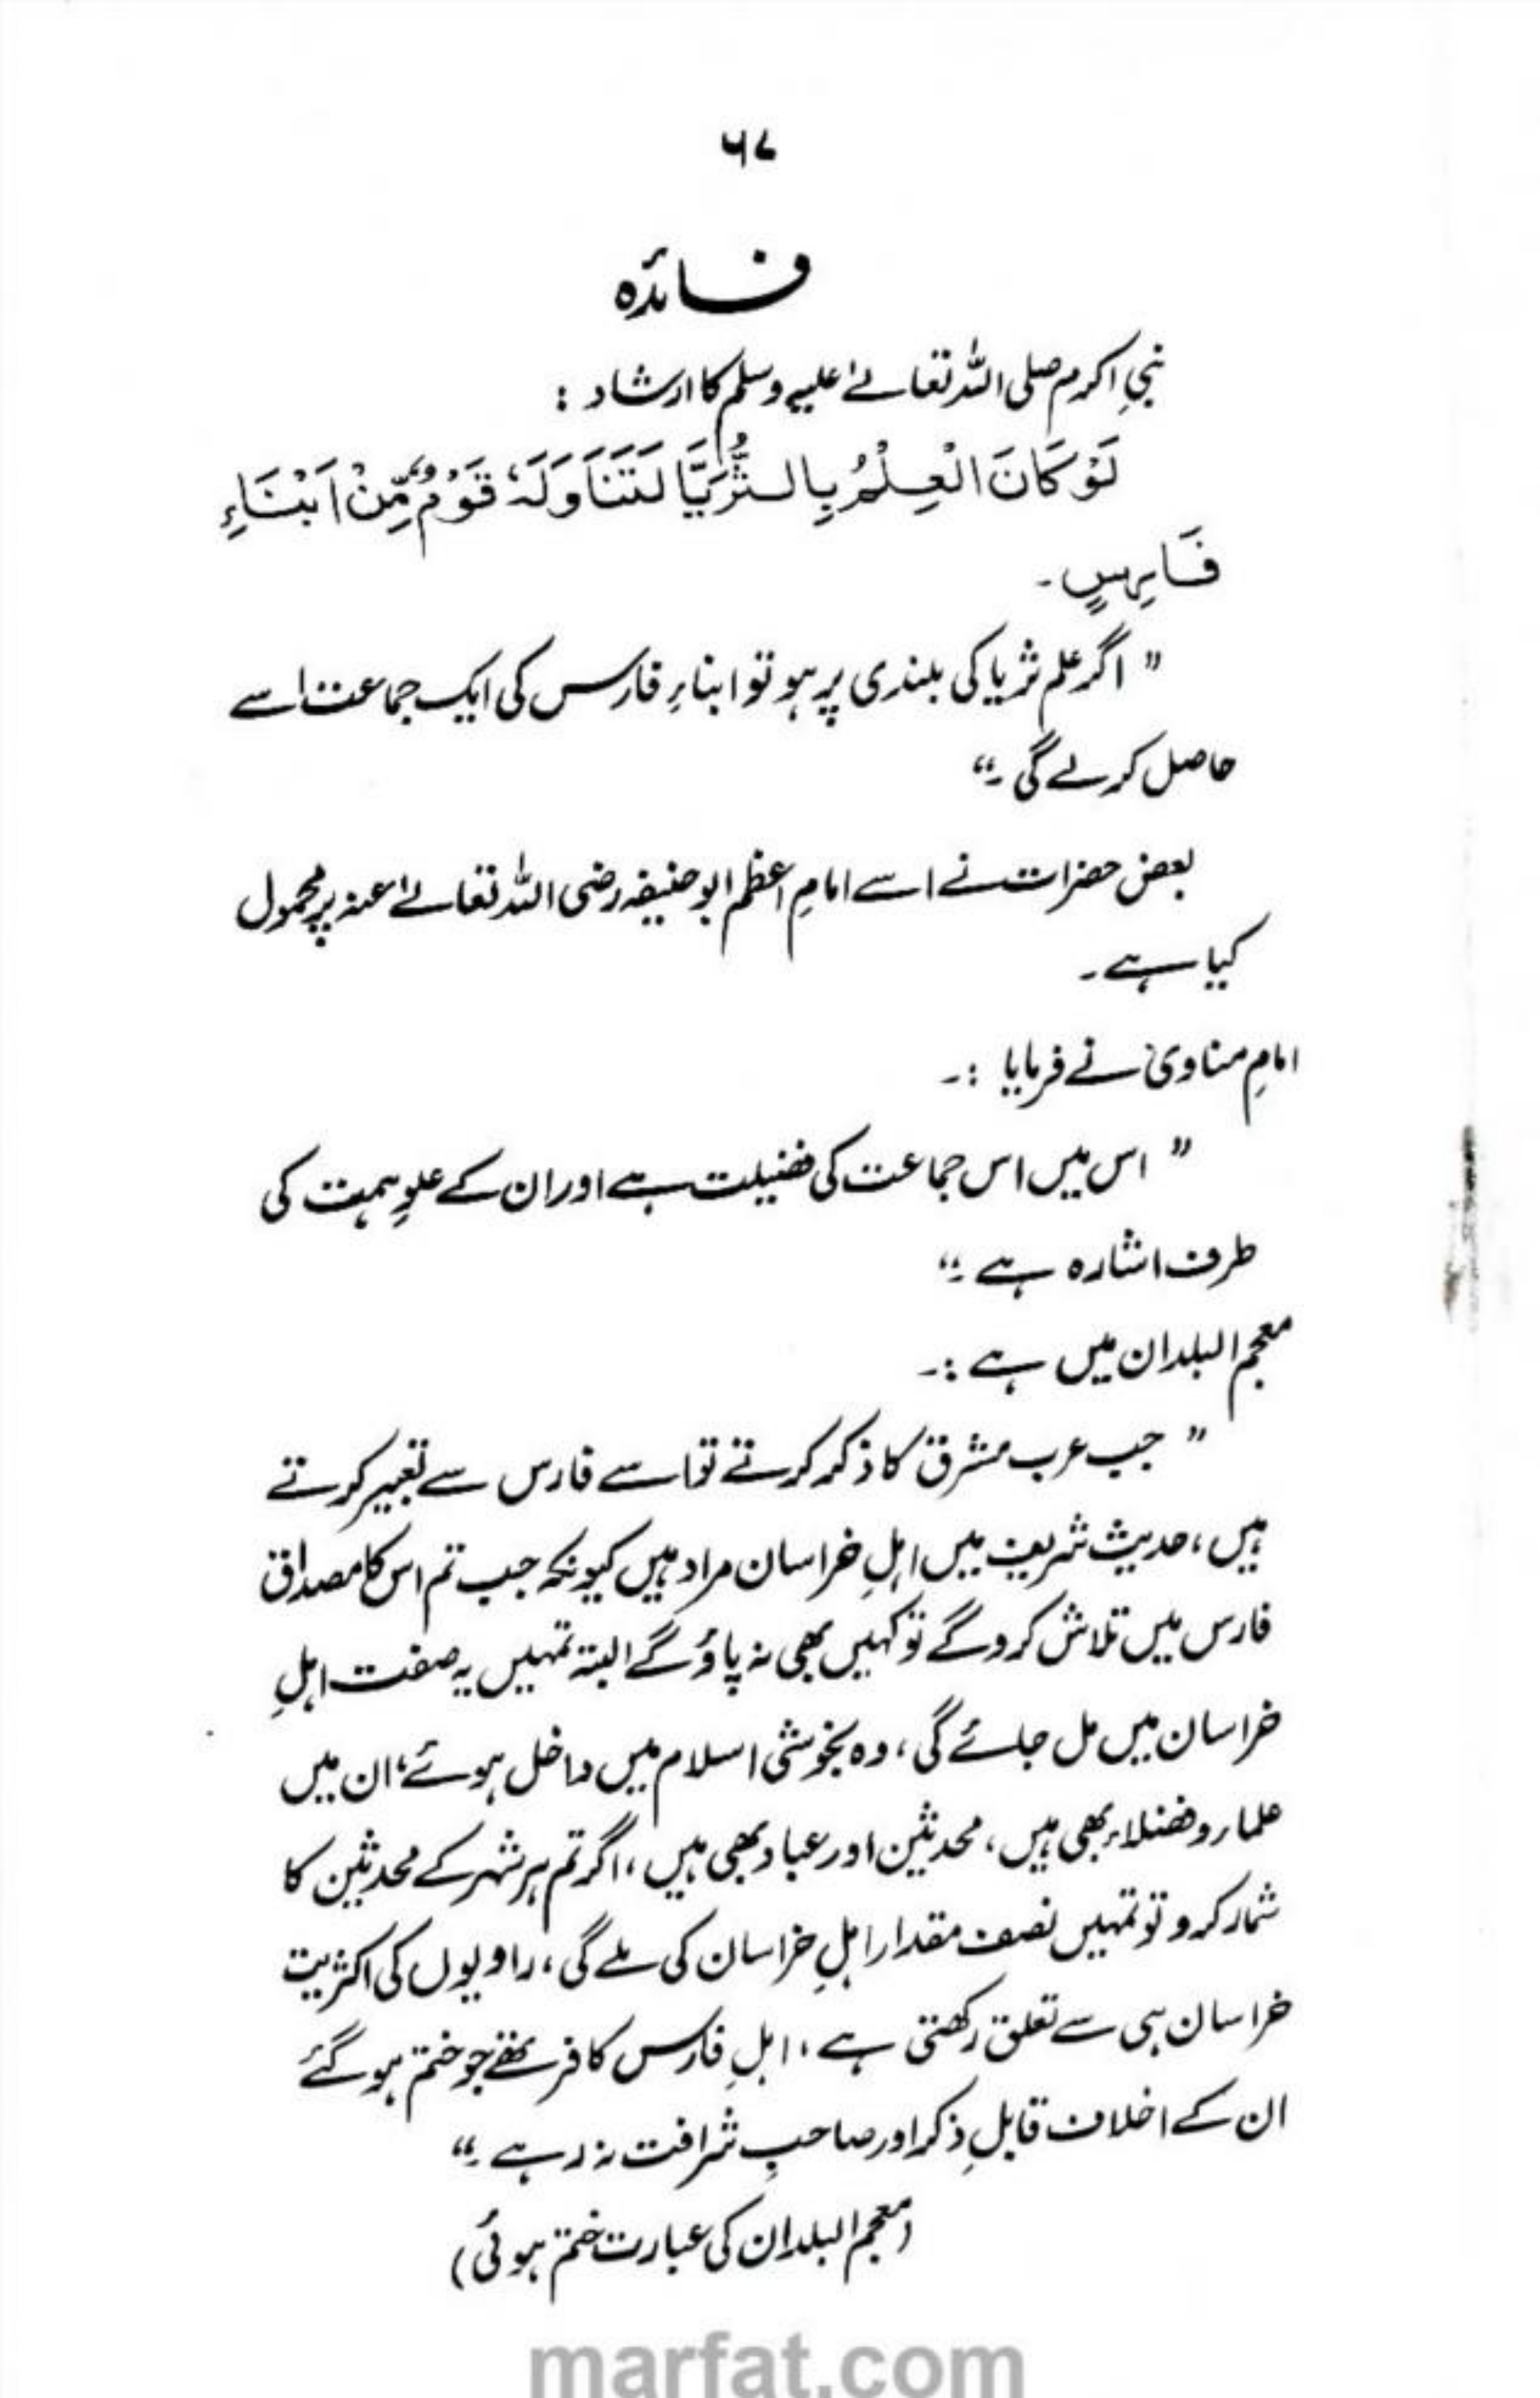 ۶۷
فائدہ
نبیِ اکرم صلی اللہ تعالےٰ علیہ وسلم کا ارشاد :
لَوْ كَانَ الْعِلْمُ بِالثُّرَيَّا لَتَنَاوَلَهٗ قَوْمٌ مِّنْ اَبْنَاءِ
فَارِسٍ ۔
" اگر علم ثریا کی بلندی پر ہو تو ابناءِ فارس کی ایک جماعت اسے
حاصل کر لے گی ۔"
بعض حضرات نے اسے امامِ اعظم ابو حنیفہ رضی اللہ تعالےٰ عنہ پر محمول
کیا ہے ۔
امامِ مناوی نے فرمایا :۔
" اس میں اس جماعت کی فضیلت ہے اور ان کے علوِ ہمت کی
طرف اشارہ ہے ۔"
معجم البلدان میں ہے :۔
" جب عرب مشرق کا ذکر کرتے تو اسے فارس سے تعبیر کرتے
ہیں ، حدیث شریف میں اہلِ خراسان مراد ہیں کیونکہ جب تم اس کا مصداق
فارس میں تلاش کرو گے تو کہیں بھی نہ پاؤ گے البتہ تمہیں یہ صفت اہلِ
خراسان میں مل جائے گی ، وہ بخوشی اسلام میں داخل ہوئے ، ان میں
علماء و فضلاء بھی ہیں ، محدثین اور عباد بھی ہیں ، اگر تم ہر شہر کے محدثین کا
شمار کرو تو تمہیں نصف مقدار اہلِ خراسان کی ملے گی ، راویوں کی اکثریت
خراسان ہی سے تعلق رکھتی ہے ، اہلِ فارس کافر تھے جو ختم ہو گئے
ان کے اخلاف قابلِ ذکر اور صاحبِ شرافت نہ رہے ۔"
(معجم البلدان کی عبارت ختم ہوئی)
marfat.com